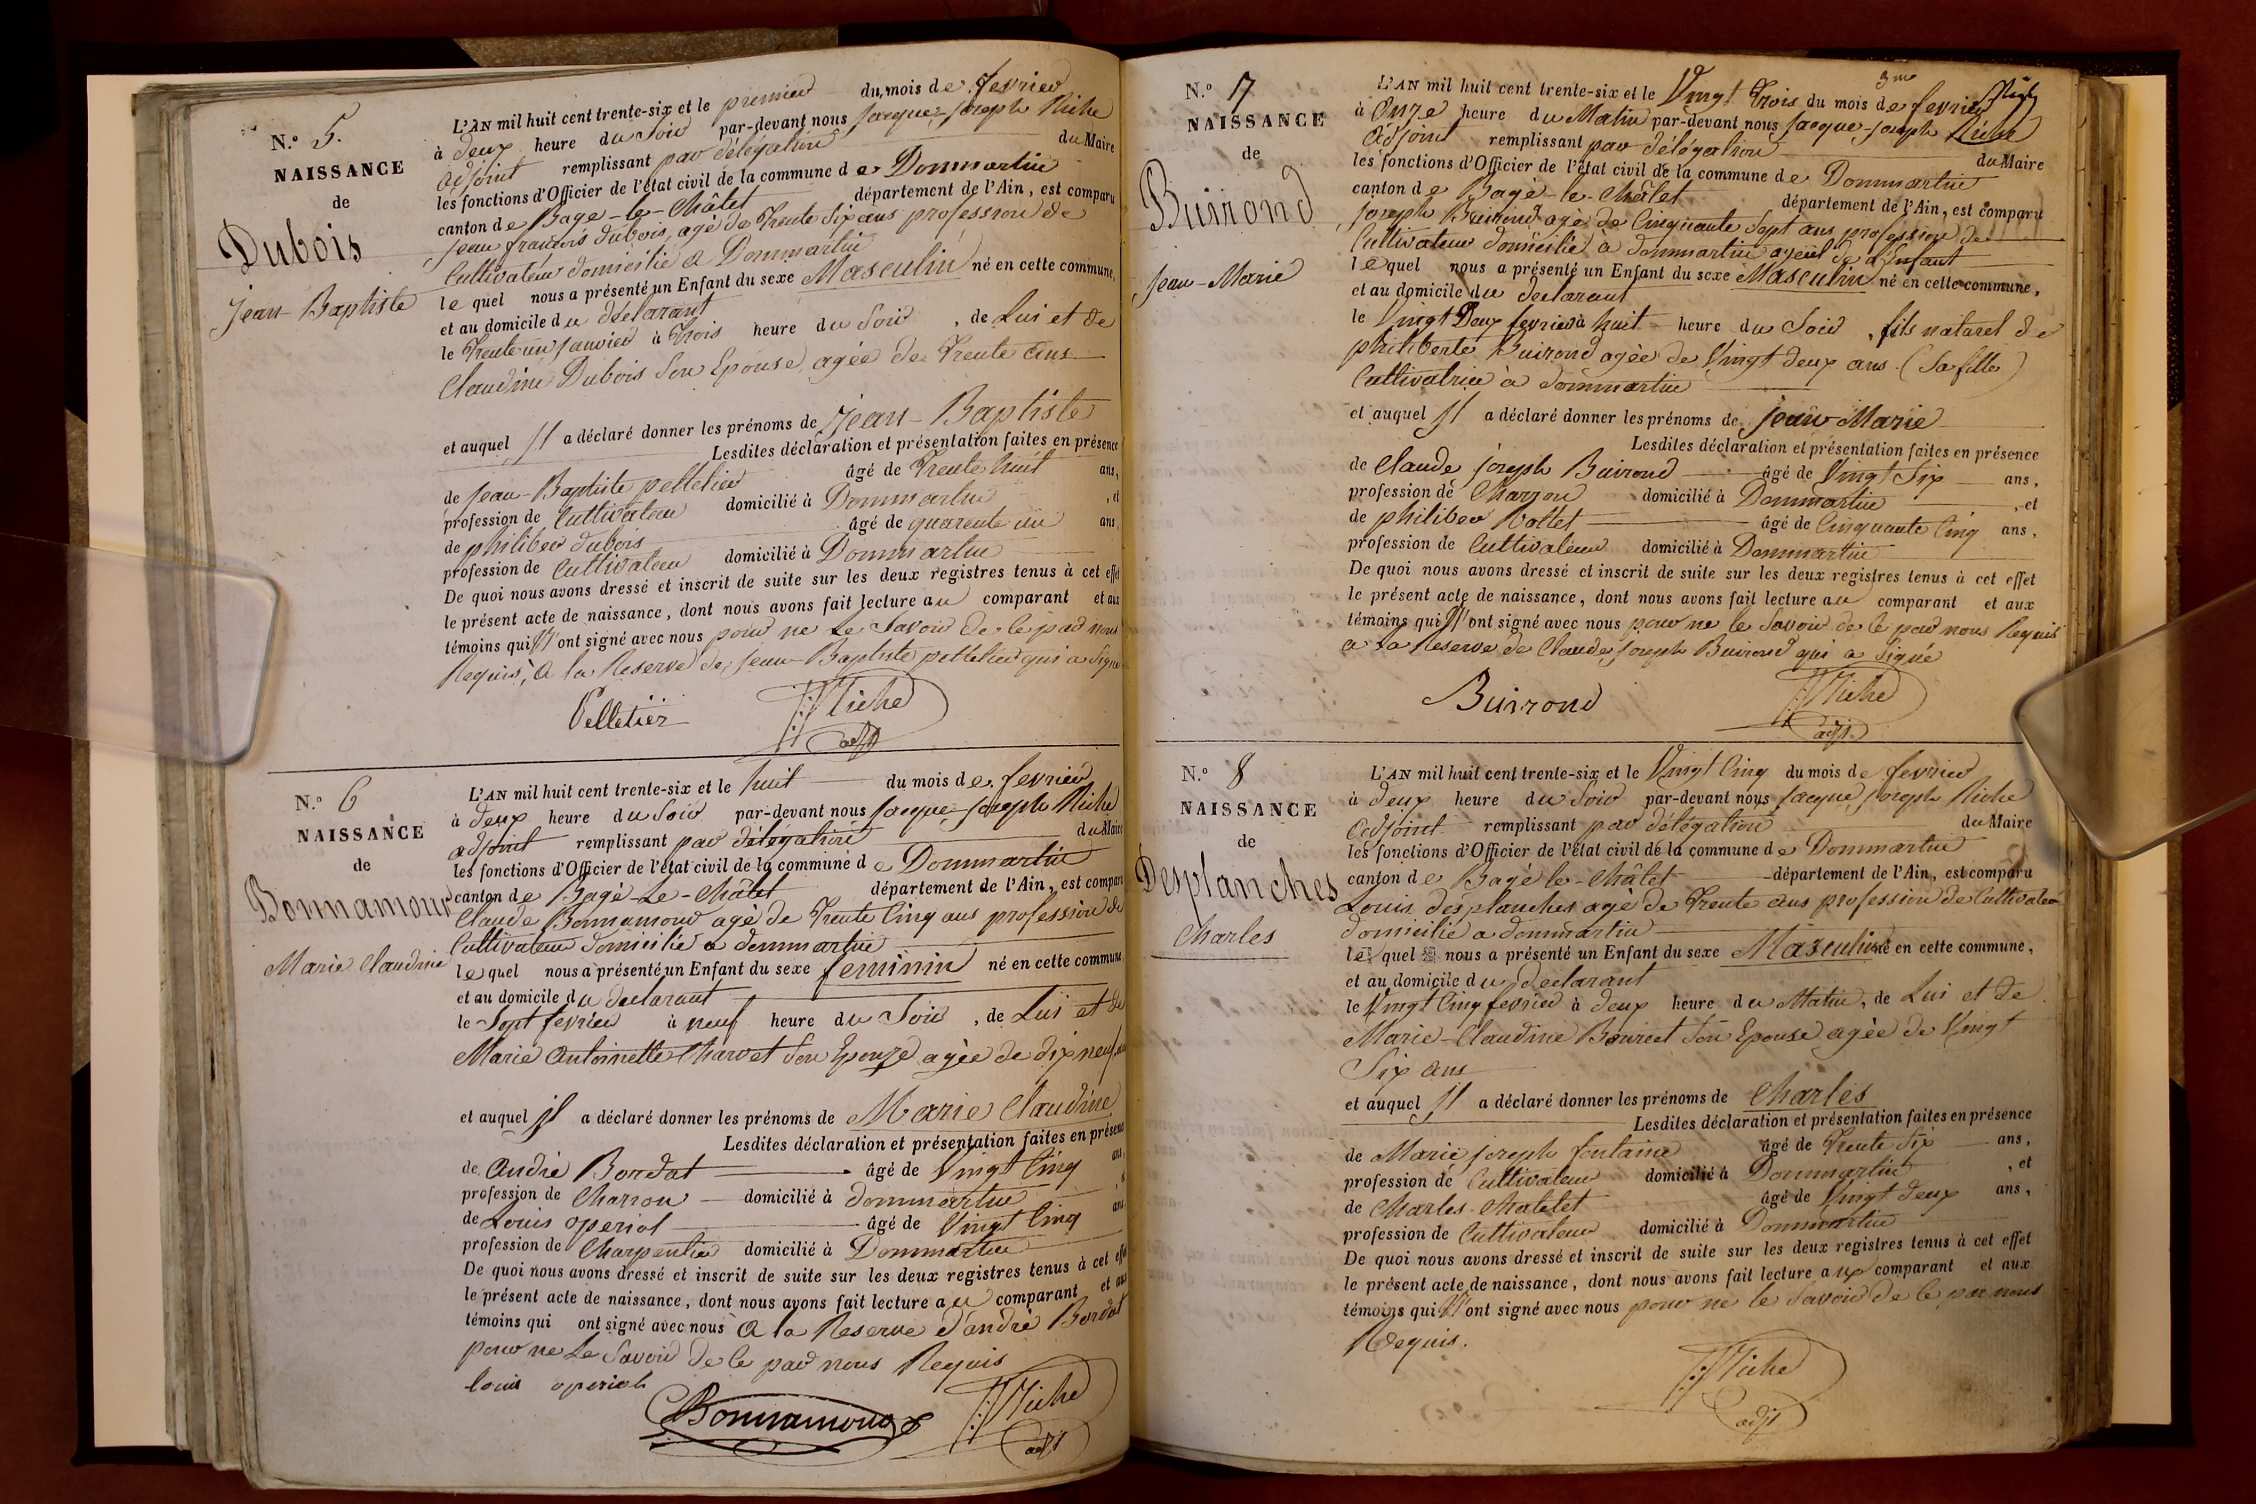 N.º 5.
NAISSANCE
de
Dubois
Jean-Baptiste
L'AN mil huit cent trente-six et le premier du mois de fevrier
à deux heure du Soir par-devant nous Jacque-Joseph Niche
adjoint remplissant par délégation du Maire
les fonctions d'Officier de l'état civil de la commune de Dommartin
canton de Bage-le-Châtel département de l'Ain, est comparu
Jean françois dubois, agé de trente Six ans profession de
Cultivateur domicilié a Dommartin
le quel nous a présenté un Enfant du sexe Masculin né en cette commune,
et au domicile du déclarant
le trente un Janvier à trois heure du Soir , de Lui et de
Claudine Dubois Son Epouse, agée de trente ans
et auquel Il a déclaré donner les prénoms de Jean-Baptiste
Lesdites déclaration et présentation faites en présence
de Jean-Baptiste pelletier âgé de trente huit ans,
profession de Cultivateur domicilié à Dommartin , et
de philiber dubois âgé de quarente un ans,
profession de Cultivateur domicilié à Dommartin
De quoi nous avons dressé et inscrit de suite sur les deux registres tenus à cet effet
le présent acte de naissance, dont nous avons fait lecture au comparant et aux
témoins qui N'ont signé avec nous pour ne le Savoir de le par nous
Requis, a la Reserve de Jean-Baptiste pelletier qui a Signé
Pelletier JJ Niche
adjt
N.º 6
NAISSANCE
de
Bonnamour
Marie Claudine
L'AN mil huit cent trente-six et le huit du mois de fevrier
à deux heure du Soir par-devant nous Jacque-Joseph Niche
adjoint remplissant par délégation du Maire
les fonctions d'Officier de l'état civil de la commune de Dommartin
canton de Bagé-Le-Châtel département de l'Ain, est comparu
Claude Bonnamour agé de trente Cinq ans profession de
Cultivateur domicilié a dommartin
le quel nous a présenté un Enfant du sexe feminin né en cette commune,
et au domicile du declarant
le Sept fevrier à neuf heure du Soir , de Lui et de
Marie Antoinette Charvet Son Epouze agée de dix neuf ans
et auquel Il a déclaré donner les prénoms de Marie Claudine
Lesdites déclaration et présentation faites en présence
de André Bordat âgé de Vingt Cinq ans,
profession de Charron domicilié à dommartin , et
de Louis operiol âgé de Vingt Cinq ans,
profession de Charpentier domicilié à Dommartin
De quoi nous avons dressé et inscrit de suite sur les deux registres tenus à cet effet
le présent acte de naissance, dont nous avons fait lecture au comparant et aux
témoins qui ont signé avec nous a la Reserve d'andré Bordat
pour ne Le Savoir de le par nous Requis
louis operiol
Bonnamour JJ Niche
adjt
N.º 7
NAISSANCE
de
Buirond
Jean-Marie
L'AN mil huit cent trente-six et le Vingt Trois du mois de fevrier
à Onze heure du Matin par-devant nous Jacque-Joseph Niche
Adjoint remplissant par délégation du Maire
les fonctions d'Officier de l'état civil de la commune de Dommartin
canton de Bagé-le-Châtel département de l'Ain, est comparu
Joseph Buirond agé de Cinquante Sept ans profession de
Cultivateur domicilié a dommartin ayeul de l'Enfant
le quel nous a présenté un Enfant du sexe Masculin né en cette commune,
et au domicile du declarant
le Vingt Deux fevrier à huit heure du Soir , fils naturel de
philiberte Buirond agée de Vingt deux ans (Sa fille)
Cultivatrice à dommartin
et auquel Il a déclaré donner les prénoms de Jean Marie
Lesdites déclaration et présentation faites en présence
de Claude Joseph Buirond âgé de Vingt Six ans,
profession de Charron domicilié à Dommartin , et
de philiber Vottet âgé de Cinquante Cinq ans,
profession de Cultivateur domicilié à Dommartin
De quoi nous avons dressé et inscrit de suite sur les deux registres tenus à cet effet
le présent acte de naissance, dont nous avons fait lecture au comparant et aux
témoins qui N'ont signé avec nous pour ne le Savoir de le par nous Requis
a La Reserve de Claude Joseph Buirond qui a Signé
Buirond JJ Niche
adjt.
N.º 8
NAISSANCE
de
Desplanches
Charles
L'AN mil huit cent trente-six et le Vingt Cinq du mois de fevrier
à deux heure du Soir par-devant nous Jacque Joseph Niche
adjoint remplissant par délégation du Maire
les fonctions d'Officier de l'état civil de la commune de Dommartin
canton de Bagé le-Châtel département de l'Ain, est comparu
Louis desplanches agé de Trente ans profession de Cultivateur
domicilié a dommartin
le quel nous a présenté un Enfant du sexe Masculin né en cette commune,
et au domicile du declarant
le Vingt Cinq fevrier à deux heure du Matin, de Lui et de
Marie-Claudine Son Epouse agée de Vingt
Six ans
et auquel Il a déclaré donner les prénoms de Charles
Lesdites déclaration et présentation faites en présence
de Marie Joseph fontaine âgé de Trente Six ans,
profession de Cultivateur domicilié à Dommartin , et
de Charles Chatelet âgé de Vingt deux ans,
profession de Cultivateur domicilié à Dommartin
De quoi nous avons dressé et inscrit de suite sur les deux registres tenus à cet effet
le présent acte de naissance, dont nous avons fait lecture aux comparant et aux
témoins qui N'ont signé avec nous pour ne le Savoir de le par nous
Requis.
JJ Niche
adjt